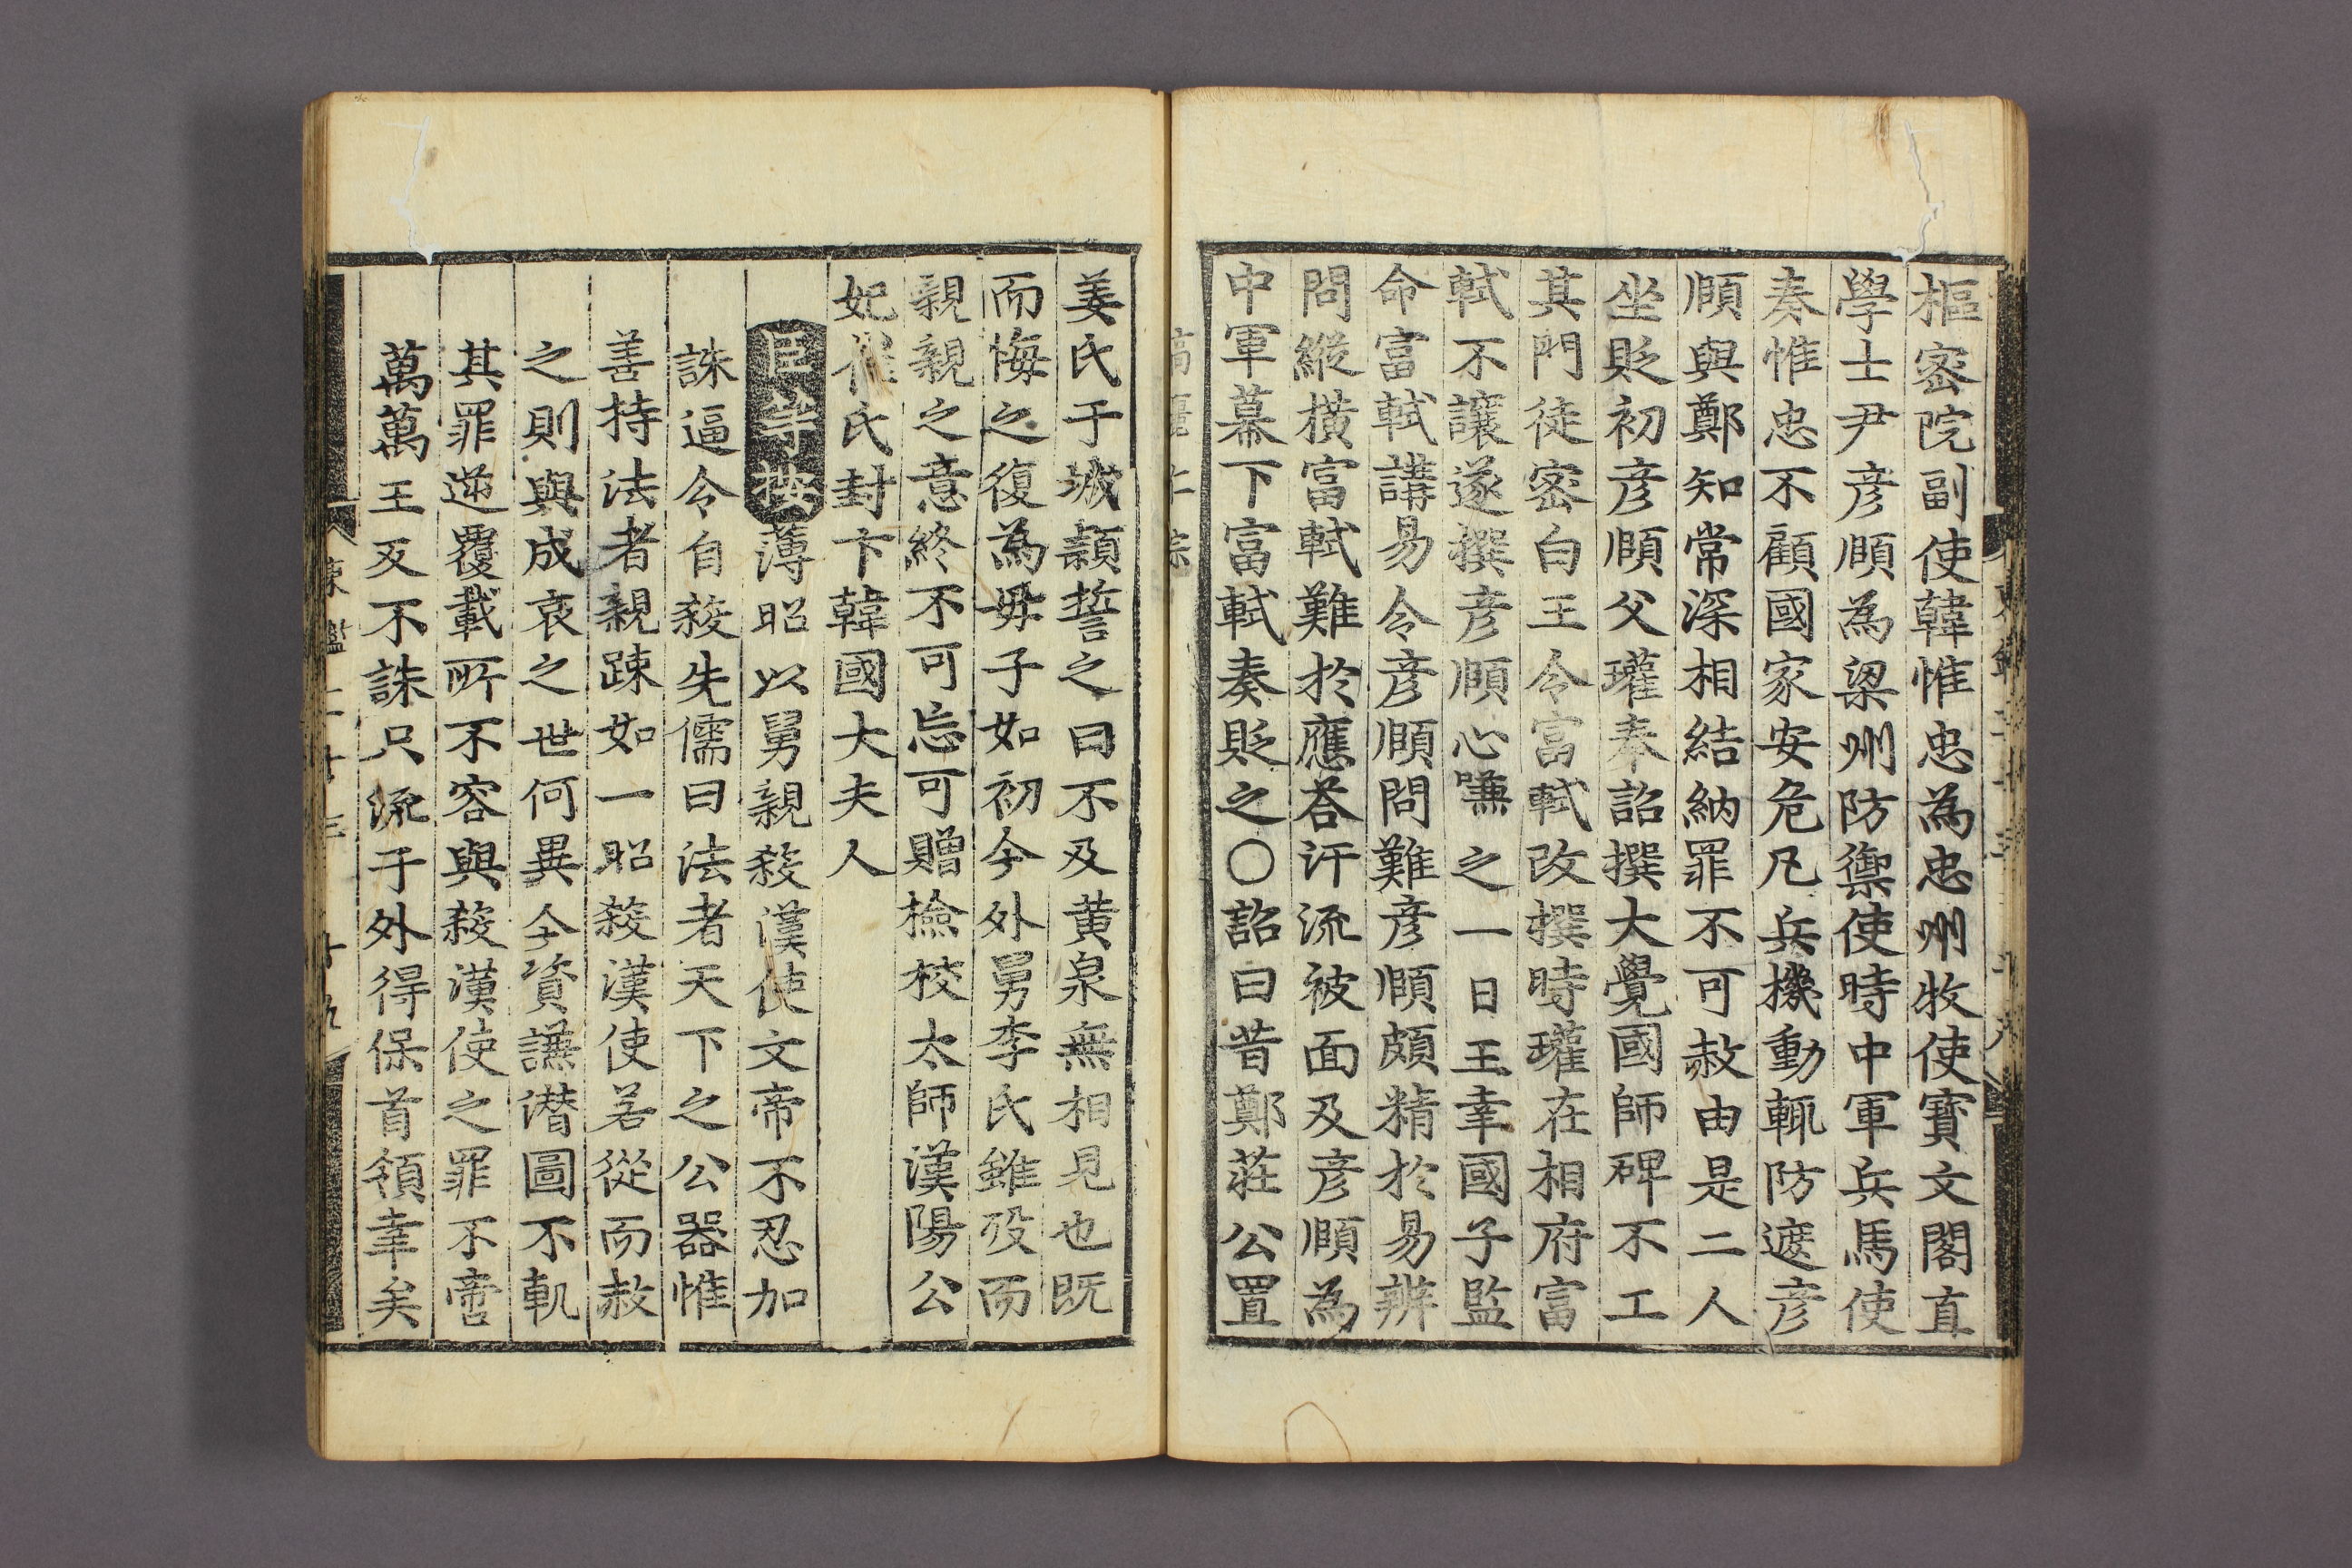 樞密院副使韓惟忠為忠州牧使寶文閣直
學士尹彦頤為梁州防禦使時中軍兵馬使
奏惟忠不顧國家安危凡兵機動輒防遮彦
頤與鄭知常深相結納罪不可赦由是二人
坐貶初彦頤父瓘奉詔撰大覺國師碑不工
其門徒密白王令富軾改撰時瓘在相府富
軾不讓遂撰彦頤心嗛之一日王幸國子監
命富軾講易令彦頤問難彦頤頗精於易辨
問縱橫富軾難於應荅汗流被面及彦頤為
中軍幕下富軾奏貶之〇詔曰昔鄭莊公置
高麗仁宗
姜氏于城穎誓之曰不及黄泉無相見也既
而悔之復為毋子如初今外舅李氏雖歿而
親親之意終不可忘可贈檢校太師漢陽公
妃崔氏封卞韓國大夫人
臣等按薄昭以舅親殺漢使文帝不忍加
誅逼令自殺先儒曰法者天下之公器惟
善持法者親踈如一昭殺漢使若從而赦
之則與成哀之世何異今資謙潜圖不軌
其罪逆覆載所不容與殺漢使之罪不啻
萬萬王又不誅只流于外得保首領幸矣
東鑑二十三 十九